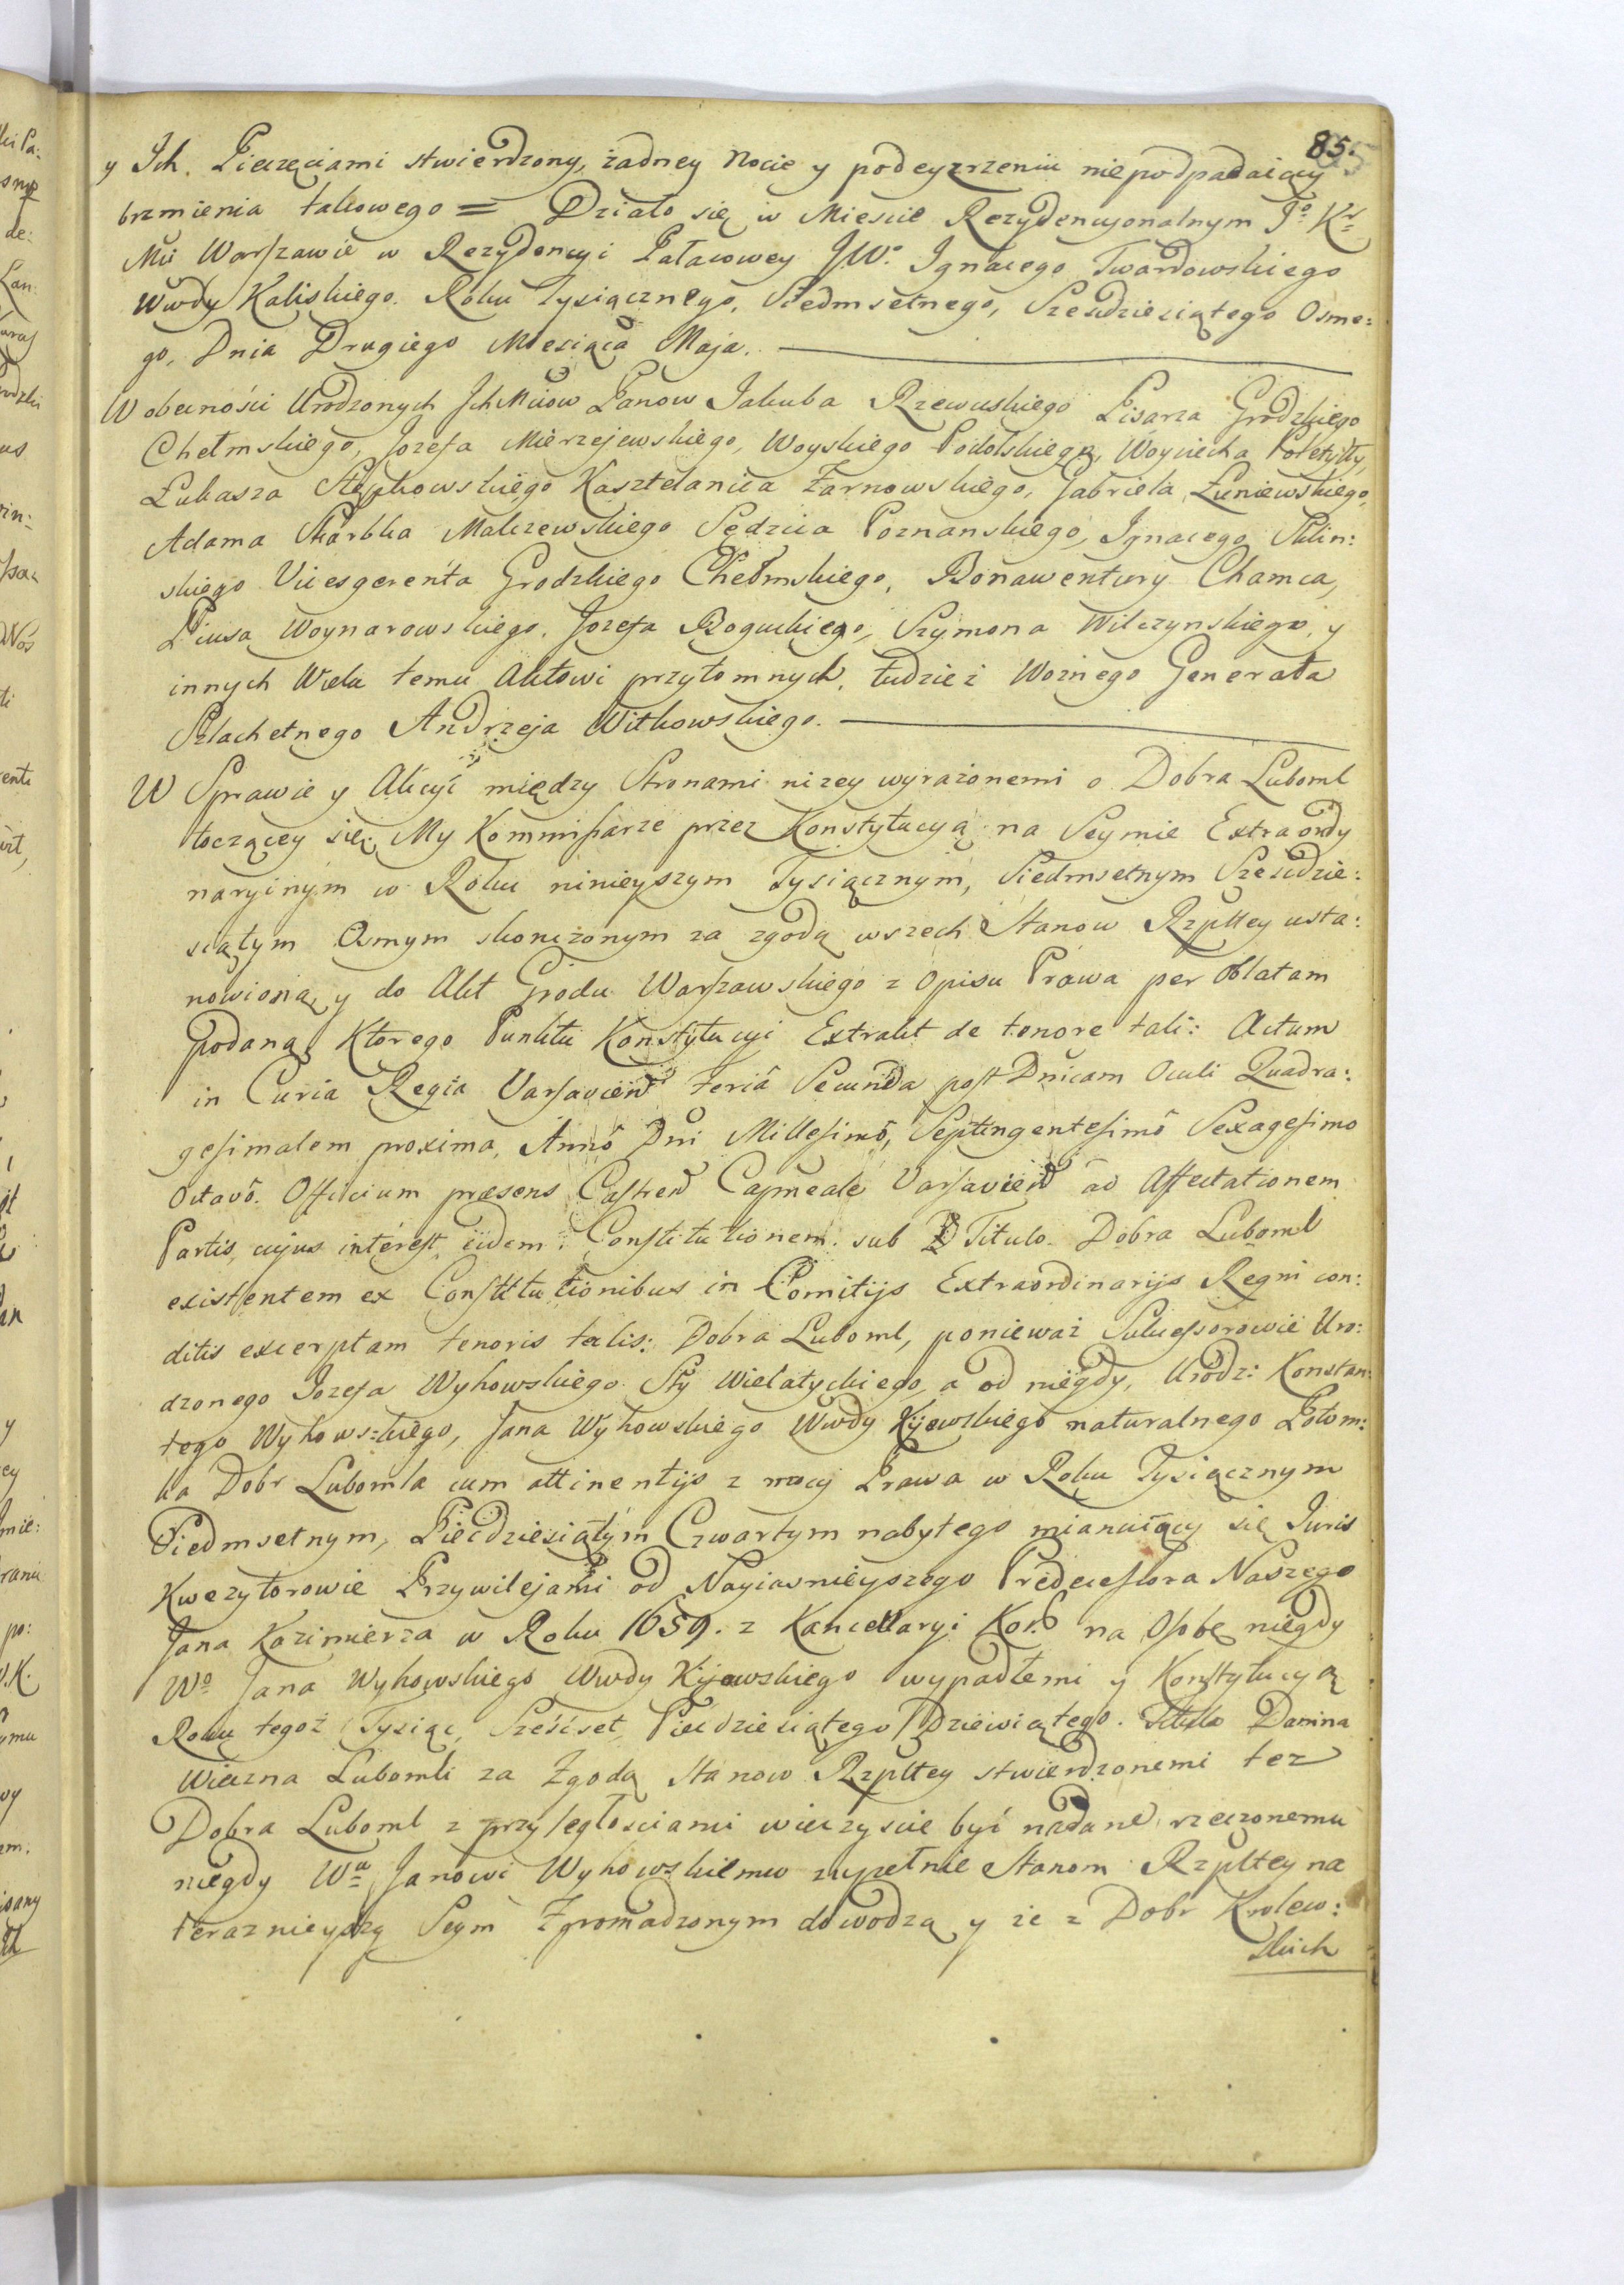 85.
y Ich. Pieczęciami stwierdzony, żadney nocie y podeyzrzeniu niepodpadaiący
brzmienia takowego = Działo się w Miescie Rezydencyonalnym Jº Kr
Mci Warszawie w Rezydencyi Pałacowey JW. Ignacego Twardowskiego
Wwdy Kaliskiego. Roku Tysiącznego, Siedmsetnego, Szesdziesiątego Osme:
go, Dnia Drugiego Miesiąca Maja.
W obecności Urodzonych Ichmciow Panow Jakuba Rzewuskiego Pisarza Grodzkiego
Chełmskiego, Jozefa Mierzejewskiego, Woyskiego Podolskiego, Woyciecha Poletyłły,
Łukasza Stępkowskiego Kasztelanica Żarnowskiego, Gabriela Łuniewskiego,
Adama Skarbka Malczewskiego Sędzica Poznanskiego, Ignacego Sklin:
skiego Vicesgerenta Grodzkiego Chełmskiego, Bonawentury Chamca,
Piusa Woynarowskiego, Jozefa Boguckiego, Szymona Wilczynskiego, y
innych Wielu temu Aktowi przytomnych, tudzież Woznego Generała
Szlachetnego Andrzeja Witkowskiego.
W Sprawie y Akcyi między Stronami nizey wyrażonemi o Dobra Luboml
toczącey się, My Kommissarze przez Konstytucyą na Seymie Extraordy
naryinym w Roku ninieyszym Tysiącznym, Siedmsetnym Szesdzie:
siątym Osmym skonczonym za zgodą wszech Stanow Rzpltey usta:
nowioną y do Akt Grodu Warszawskiego z opisu Prawa per Oblatam
podaną, Ktorego Punktu Konstytucyi Extrakt de tenore tali: Actum
in Curia Regia Varsavien feria Secunda post Dnicam Oculi Quadra:
gesimalem proxima, Anno Dni Millesimo, Septingentesimo Sexagesimo
Octavo. Officium præsens Castren Capneale Varsavien ad Affectationem
Partis, cujus interest eidem Constitutionem sub Titulo Dobra Luboml
existentem ex Constitutionibus in Comitijs Extraordinarijs Regni con:
ditis excerptam tenoris talis: Dobra Luboml, ponieważ Sukcessorowie Uro:
dzonego Jozefa Wyhowskiego Sty Wielatyckiego, a od niegdy, Urodz: Konstan:
tego Wyhowskiego, Jana Wyhowskiego Wwdy Kijowskiego naturalnego Potom:
ka Dobr Lubomla cum attinentijs z mocy Prawa w Roku Tysiącznym
Siedmsetnym, Pięcdziesiątym Czwartym nabytego mianuiący się Juris
Kwezytorowie Przywilejami od Nayiasnieyszego Predecessora Naszego
Jana Kazimierza w Roku 1659. z Kancellaryi Kor. na Osobę niegdy
Wº Jana Wyhowskiego Wwdy Kijowskiego wypadłemi y Konstytucyą
Roku tegoż Tysiąc, Sześćset, Pięcdziesiątego Dziewiątego. Titulo Danina
Wieczna Lubomli za Zgodą Stanow Rzpltey stwierdzonemi tez
Dobra Luboml z przyległosciami wieczyscie być nadane rzeczonemu
niegdy Wu Janowi Wyhowskiemu zupełnie Stanom Rzpltey na
teraznieyszy Seym Zgromadzonym dowodzą y ze z Dobr Krolew:
skich